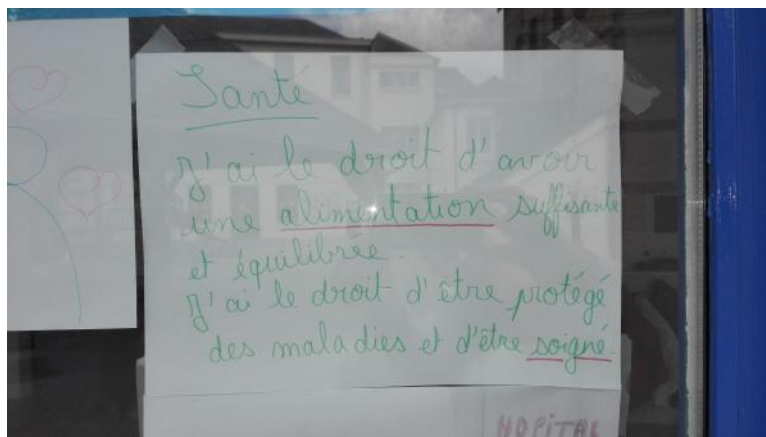 Santé
J'ai le droit d'avoir
une alimentation suffisante
et équilibrée.
J'ai le droit d'être protégé
des maladies et d'être soigné.
HOPITAL